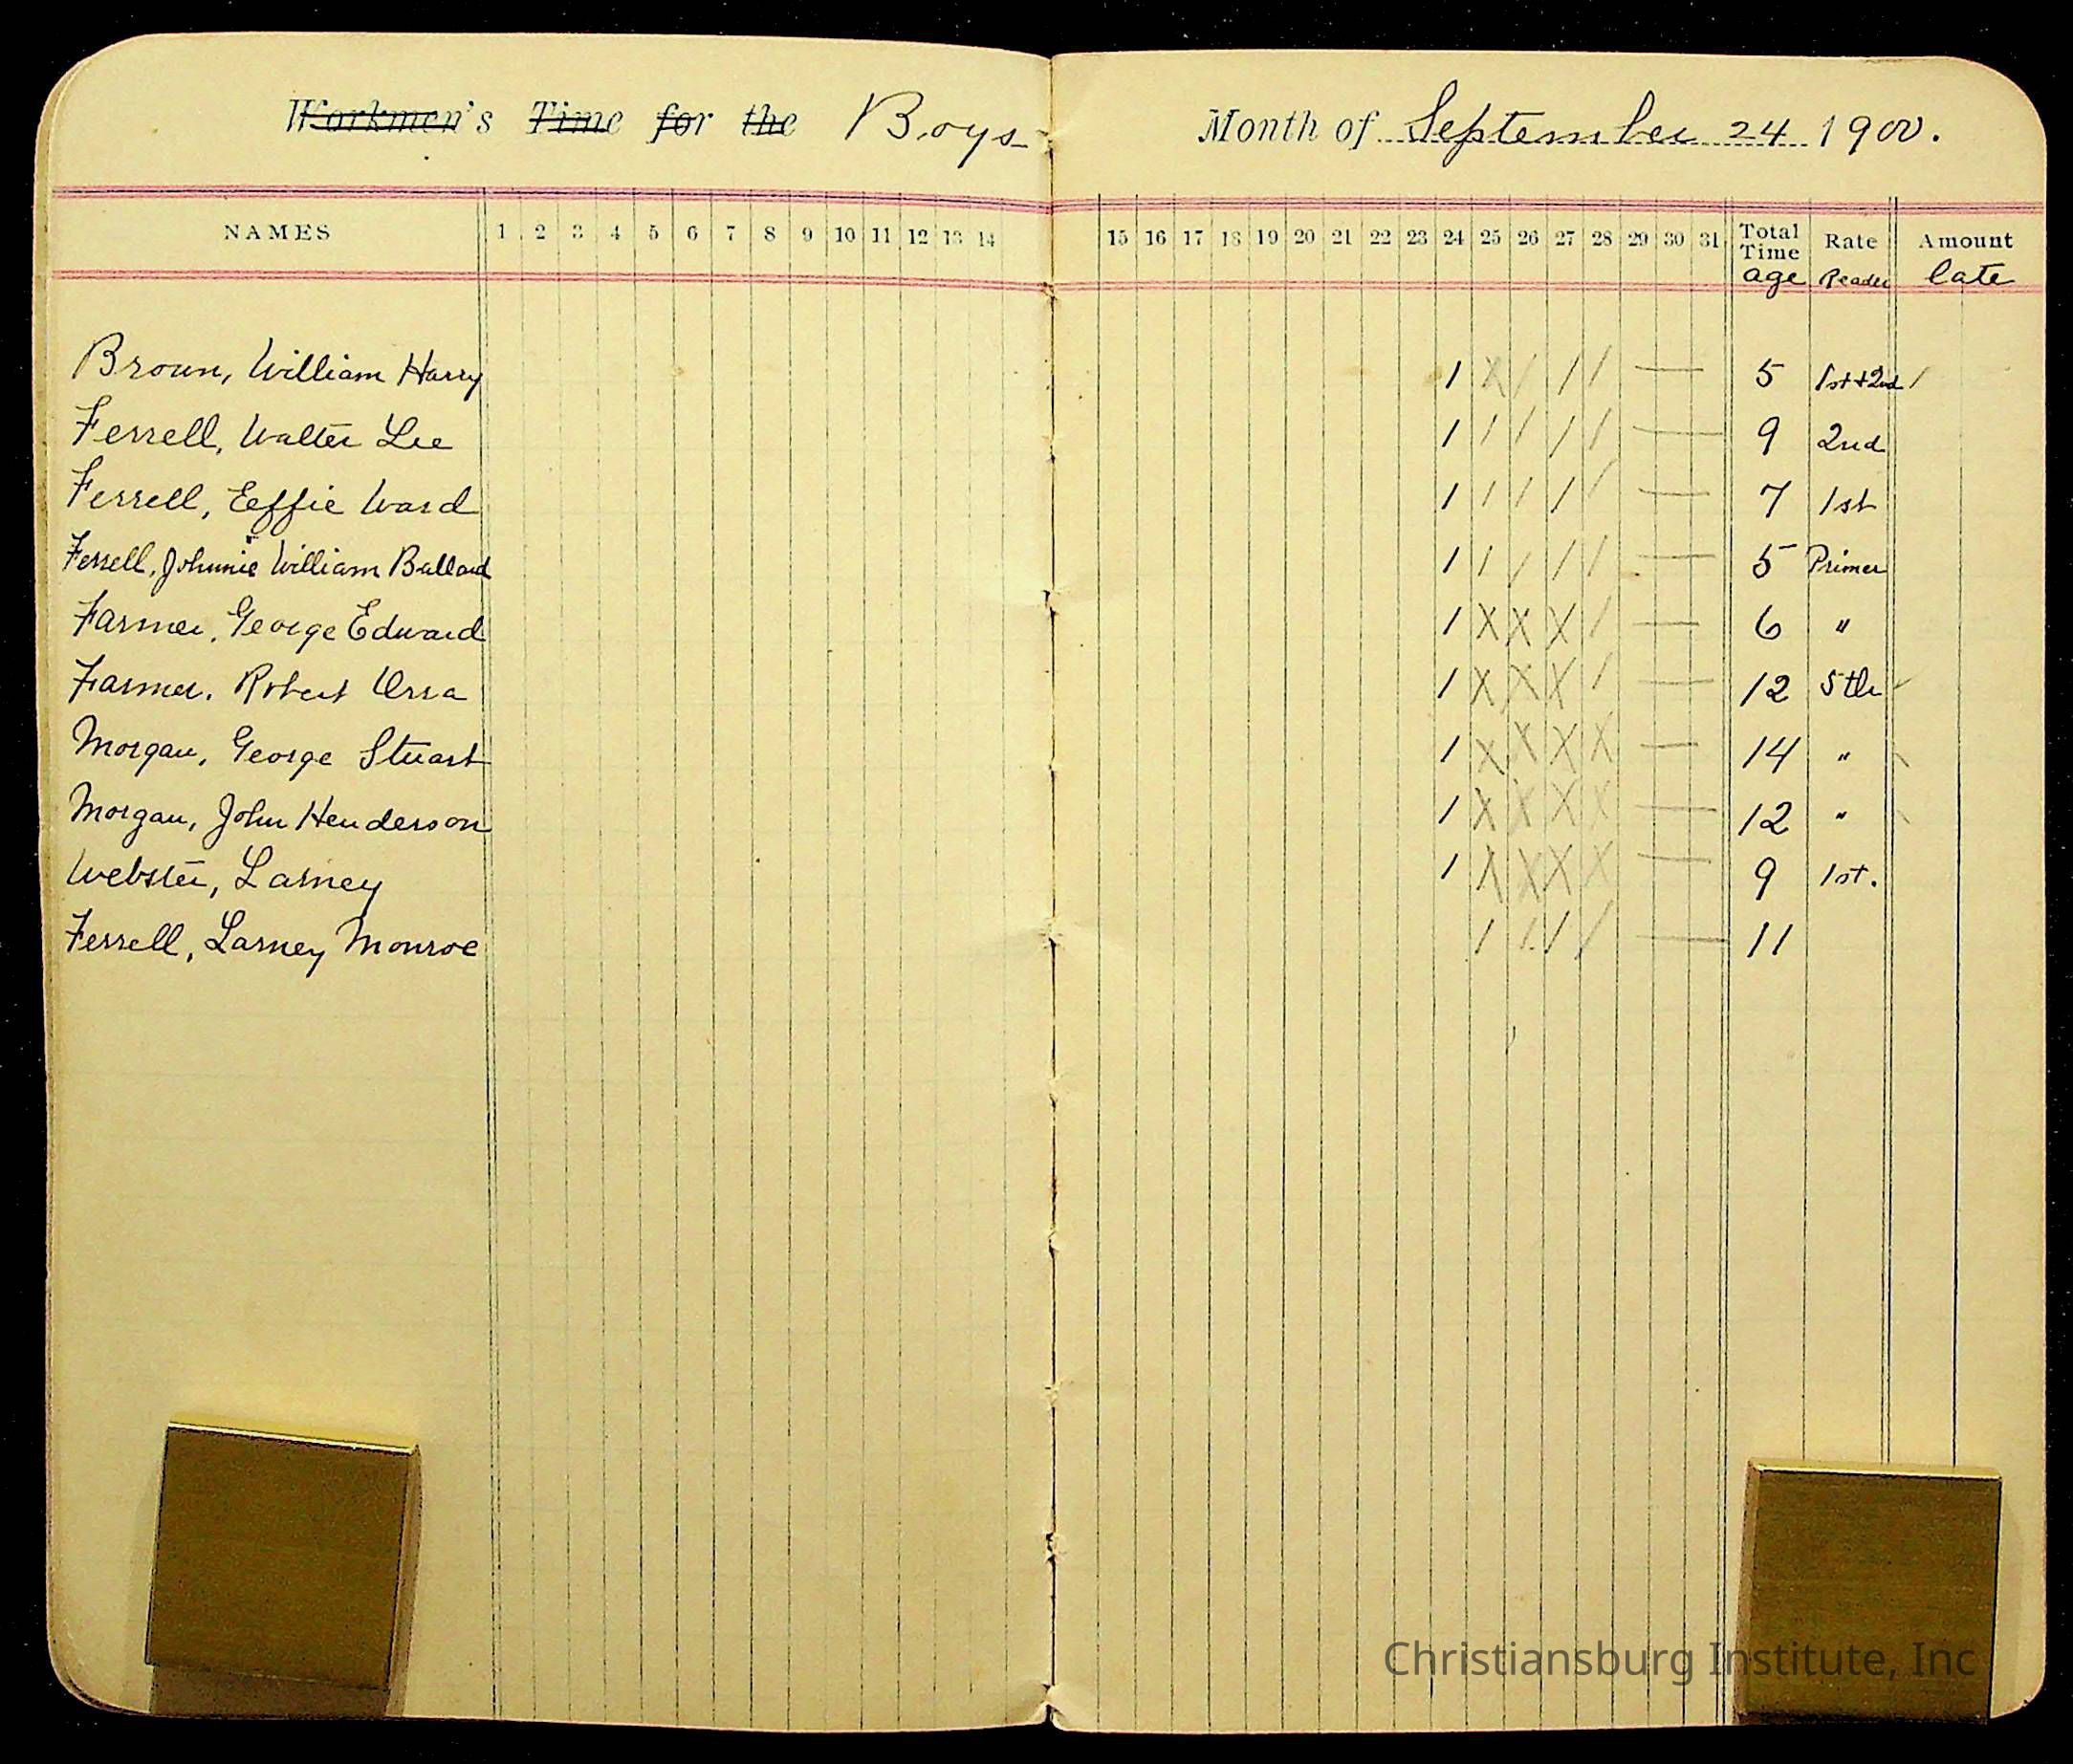 Workmen's Time for the Boys Month of September 24 1900.
NAMES 1 2 3 4 5 6 7 8 9 10 11 12 13 14 15 16 17 18 19 20 21 22 23 24 25 26 27 28 29 30 31 Total Time Rate Amount
age Reader late
Brown, William Harry / X / / / — 5 1st+2nd /
Ferrell, Walter Lee / / / / / — 9 2nd
Ferrell, Eeffie Ward / / / / / — 7 1st
Ferrell, Johnnie William Ballard / / / / / — 5 Primer
Farmer, George Edward / X X X / — 6 "
Farmer, Robert Orra / X X X / — 12 5th
Morgan, George Stuart / X X X X — 14 "
Morgan, John Henderson / X X X X — 12 "
Webster, Larney / X X X X — 9 1st.
Ferrell, Larney Monroe / / / / — 11
Christiansburg Institute, Inc